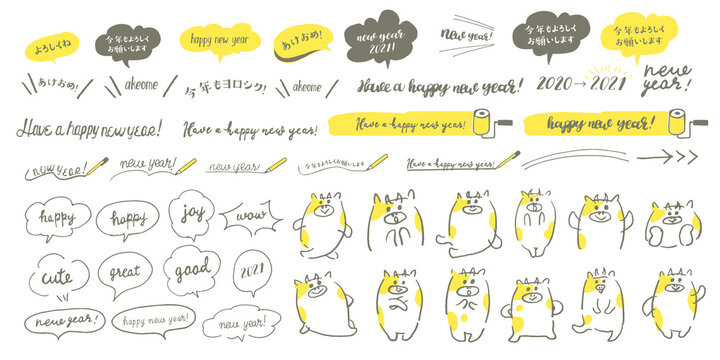 よろしくね
今年もよろしく
お願いします
happy new year
あけおめ!
new year
2021!
new year!
今年もよろしく
お願いします
今年もよろしく
お願いします
あけおめ!
akeome
今年もヨロシク!
akeome
Have a happy new year!
2020→2021
new
year!
Have a happy new year!
Have a happy new year!
Have a happy new year!
happy new year!
new year!
new year!
new year!
今年もよろしくお願いします
Have a happy new year!
happy
happy
joy
wow
cute
great
good
2021
new year!
happy new year!
new year!